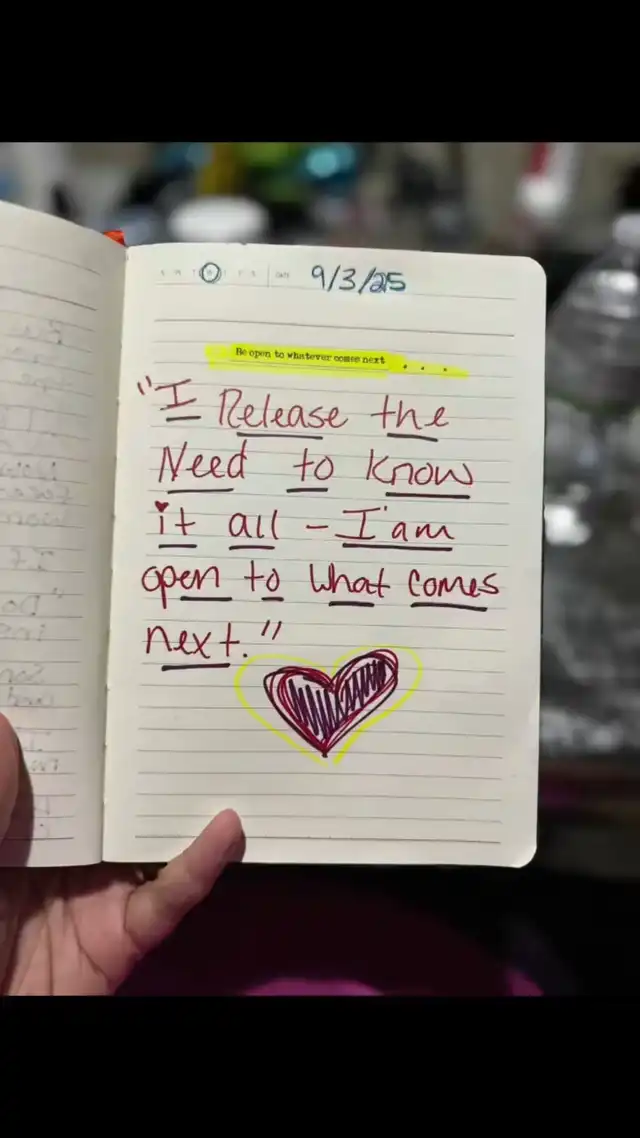 S M T W T F S DATE 9/3/25
Be open to whatever comes next . . .
"I Release the
Need to know
it all – I am
open to what comes
next."